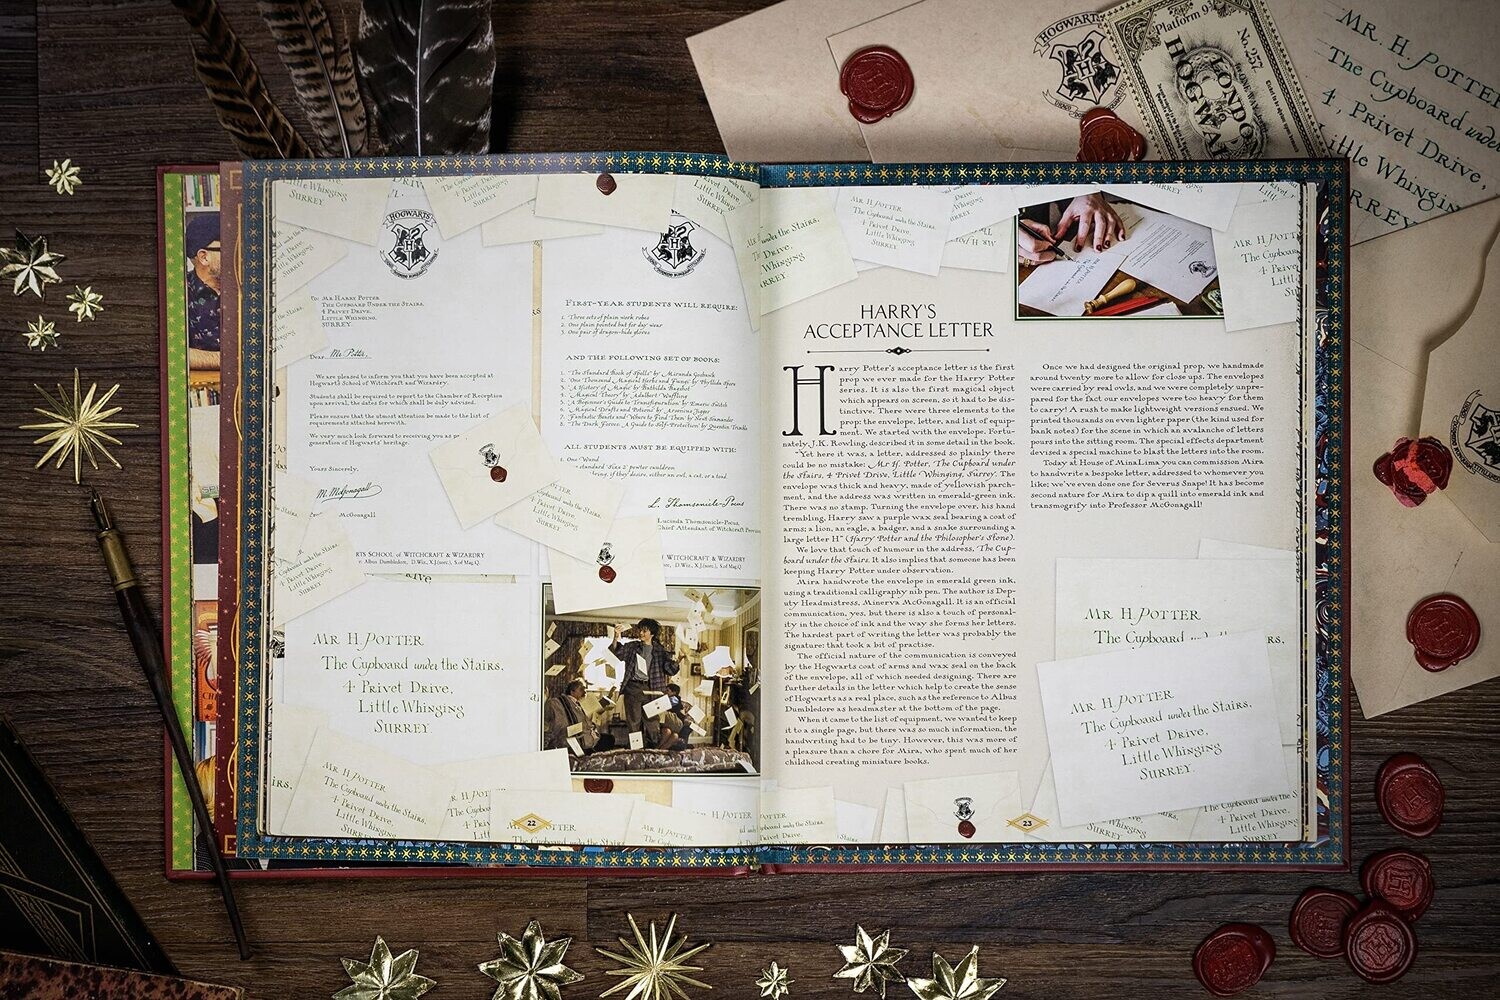 HOGWARTS
Platform 9¾
No. 257
LONDON
HOGWARTS
MR. H. POTTER
The Cupboard under
4, Privet Drive,
Little Whinging
SURREY
HOGWARTS
To: Mr Harry Potter
The Cupboard Under the Stairs,
4 Privet Drive,
Little Whinging,
SURREY.
Dear Mr Potter,
We are pleased to inform you that you have been accepted at
Hogwarts School of Witchcraft and Wizardry.
Students shall be required to report to the Chamber of Reception
upon arrival, the dates for which shall be duly advised.
Please ensure that the utmost attention be made to the list of
requirements attached herewith.
We very much look forward to receiving you as
generation of Hogwarts' heritage.
Yours Sincerely,
M. McGonagall
McGonagall
SCHOOL of WITCHCRAFT & WIZARDRY
Albus Dumbledore,
MR H. POTTER
The Cupboard under the Stairs,
4 Privet Drive,
Little Whinging
SURREY
22
FIRST-YEAR STUDENTS WILL REQUIRE:
1. Three sets of plain work robes
2. One plain pointed hat for day wear
3. One pair of dragon-hide gloves
AND THE FOLLOWING SET OF BOOKS:
1. "The Standard Book of Spells" by Miranda Goshawk
2. "One Thousand Magical Herbs and Fungi" by Phyllida Spore
3. "A History of Magic" by Bathilda Bagshot
4. "Magical Theory" by Adalbert Waffling
5. "A Beginner's Guide to Transfiguration" by Emeric Switch
6. "Magical Drafts and Potions" by Arsenius Jigger
7. "Fantastic Beasts and Where to Find Them" by Newt Scamander
8. "The Dark Forces: A Guide to Self-Protection" by Quentin Trimble
ALL STUDENTS MUST BE EQUIPPED WITH:
1. One Wand
standard 'Size 2' pewter cauldron
if they desire, either an owl, a cat, or a toad
L. Thomsonicle-Pocus
Lucinda Thomsonicle-Pocus,
Chief Attendant of Witchcraft
WITCHCRAFT & WIZARDRY
HARRY'S
ACCEPTANCE LETTER
Harry Potter's acceptance letter is the first
prop we ever made for the Harry Potter
series. It is also the first magical object
which appears on screen, so it had to be dis-
tinctive. There were three elements to the
prop: the envelope, letter, and list of equip-
ment. We started with the envelope. Fortu-
nately, J.K. Rowling, described it in some detail in the book.
"Yet here it was, a letter, addressed so plainly there
could be no mistake: Mr H. Potter, The Cupboard under
the Stairs, 4 Privet Drive, Little Whinging, Surrey. The
envelope was thick and heavy, made of yellowish parch-
ment, and the address was written in emerald-green ink.
There was no stamp. Turning the envelope over, his hand
trembling, Harry saw a purple wax seal bearing a coat of
arms; a lion, an eagle, a badger, and a snake surrounding a
large letter H" (Harry Potter and the Philosopher's Stone).
We love that touch of humour in the address, 'The Cup-
board under the Stairs. It also implies that someone has been
keeping Harry Potter under observation.
Mira handwrote the envelope in emerald green ink,
using a traditional calligraphy nib pen. The author is Dep-
uty Headmistress, Minerva McGonagall. It is an official
communication, yes, but there is also a touch of personal-
ity in the choice of ink and the way she forms her letters.
The hardest part of writing the letter was probably the
signature: that took a bit of practise.
The official nature of the communication is conveyed
by the Hogwarts coat of arms and wax seal on the back
of the envelope, all of which needed designing. There are
further details in the letter which help to create the sense
of Hogwarts as a real place, such as the reference to Albus
Dumbledore as headmaster at the bottom of the page.
When it came to the list of equipment, we wanted to keep
it to a single page, but there was so much information, the
handwriting had to be tiny. However, this was more of
a pleasure than a chore for Mira, who spent much of her
childhood creating miniature books.
Once we had designed the original prop, we handmade
around twenty more to allow for close ups. The envelopes
were carried by real owls, and we were completely unpre-
pared for the fact our envelopes were too heavy for them
to carry! A rush to make lightweight versions ensued. We
printed thousands on even lighter paper (the kind used for
bank notes) for the scene in which an avalanche of letters
pours into the sitting room. The special effects department
devised a special machine to blast the letters into the room.
Today at House of MinaLima you can commission Mira
to handwrite a bespoke letter, addressed to whomever you
like; we've even done one for Severus Snape! It has become
second nature for Mira to dip a quill into emerald ink and
transmogrify into Professor McGonagall!
MR H. POTTER
The Cupboard
MR H. POTTER
The Cupboard under the Stairs,
4 Privet Drive,
Little Whinging
SURREY.
23